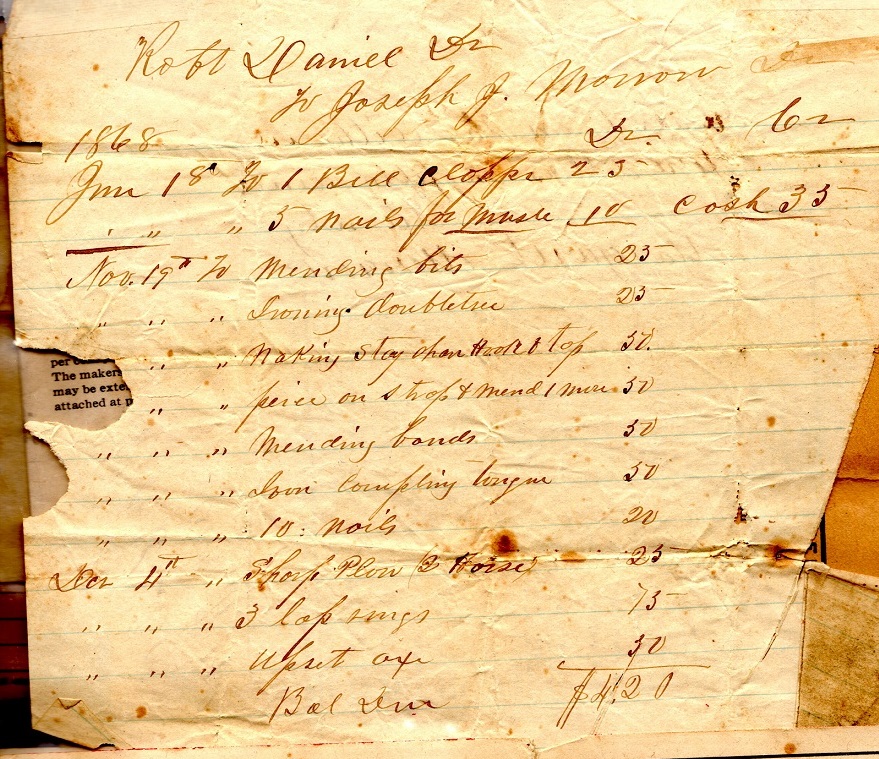 Robt Daniel Dr
To Joseph J. Morrow Dr
1868 Dr. Cr
Jun 18 To 1 Bell clapper 25
" " " 5 nails for Mule 10 Cash 35
Nov. 19th To Mending bits 25
" " " Ironing doubletree 25
" " Making Stay chain Hook & top 50.
" " peice on strap & mend 1 more 50
" " " Mending bands 50
" " " Iron Coupling tongue 50
" " " 10 nails 20
per
The makers
may be exte
attached at p
Dec 4th " Sharp Plow (2 Horse) 25
" " " 3 lap rings 75
" " " Upset axe 50
Bal Due $4.20